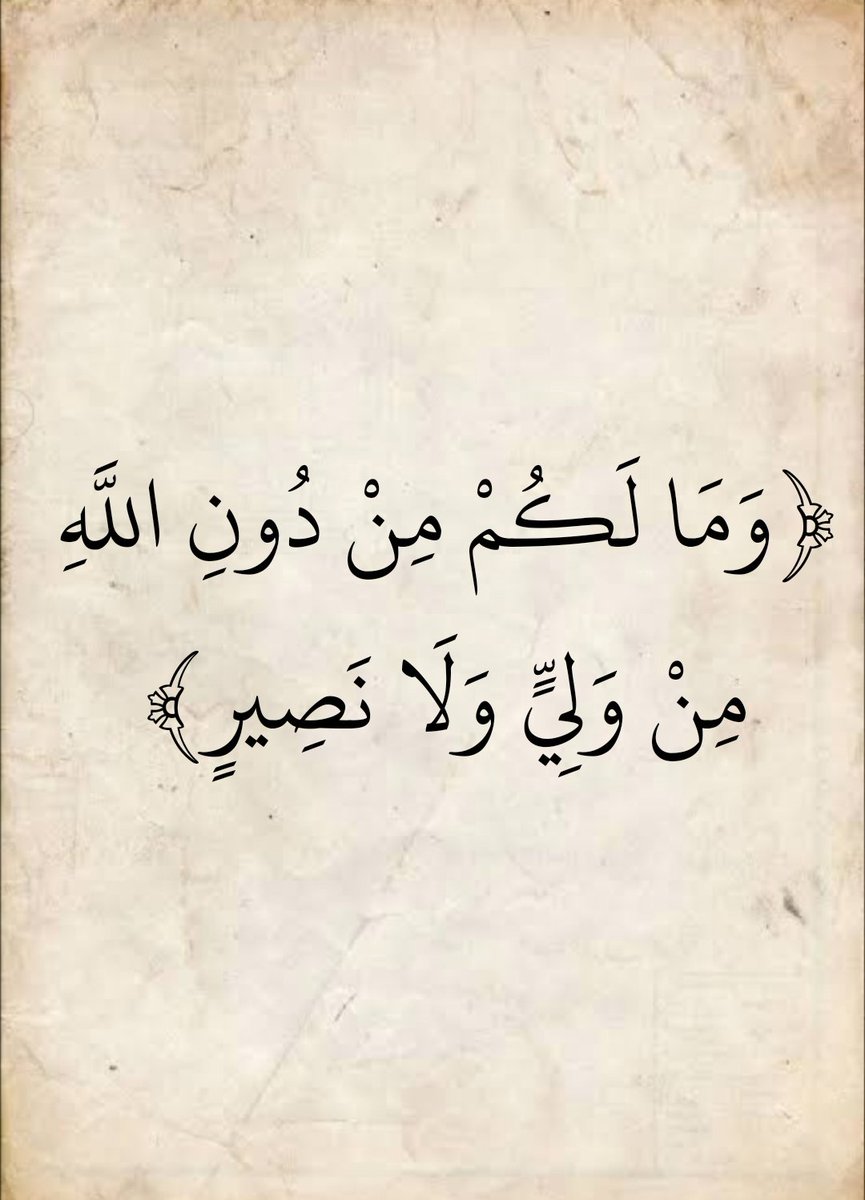 ﴿وَمَا لَكُمْ مِنْ دُونِ اللَّهِ
مِنْ وَلِيٍّ وَلَا نَصِيرٍ﴾